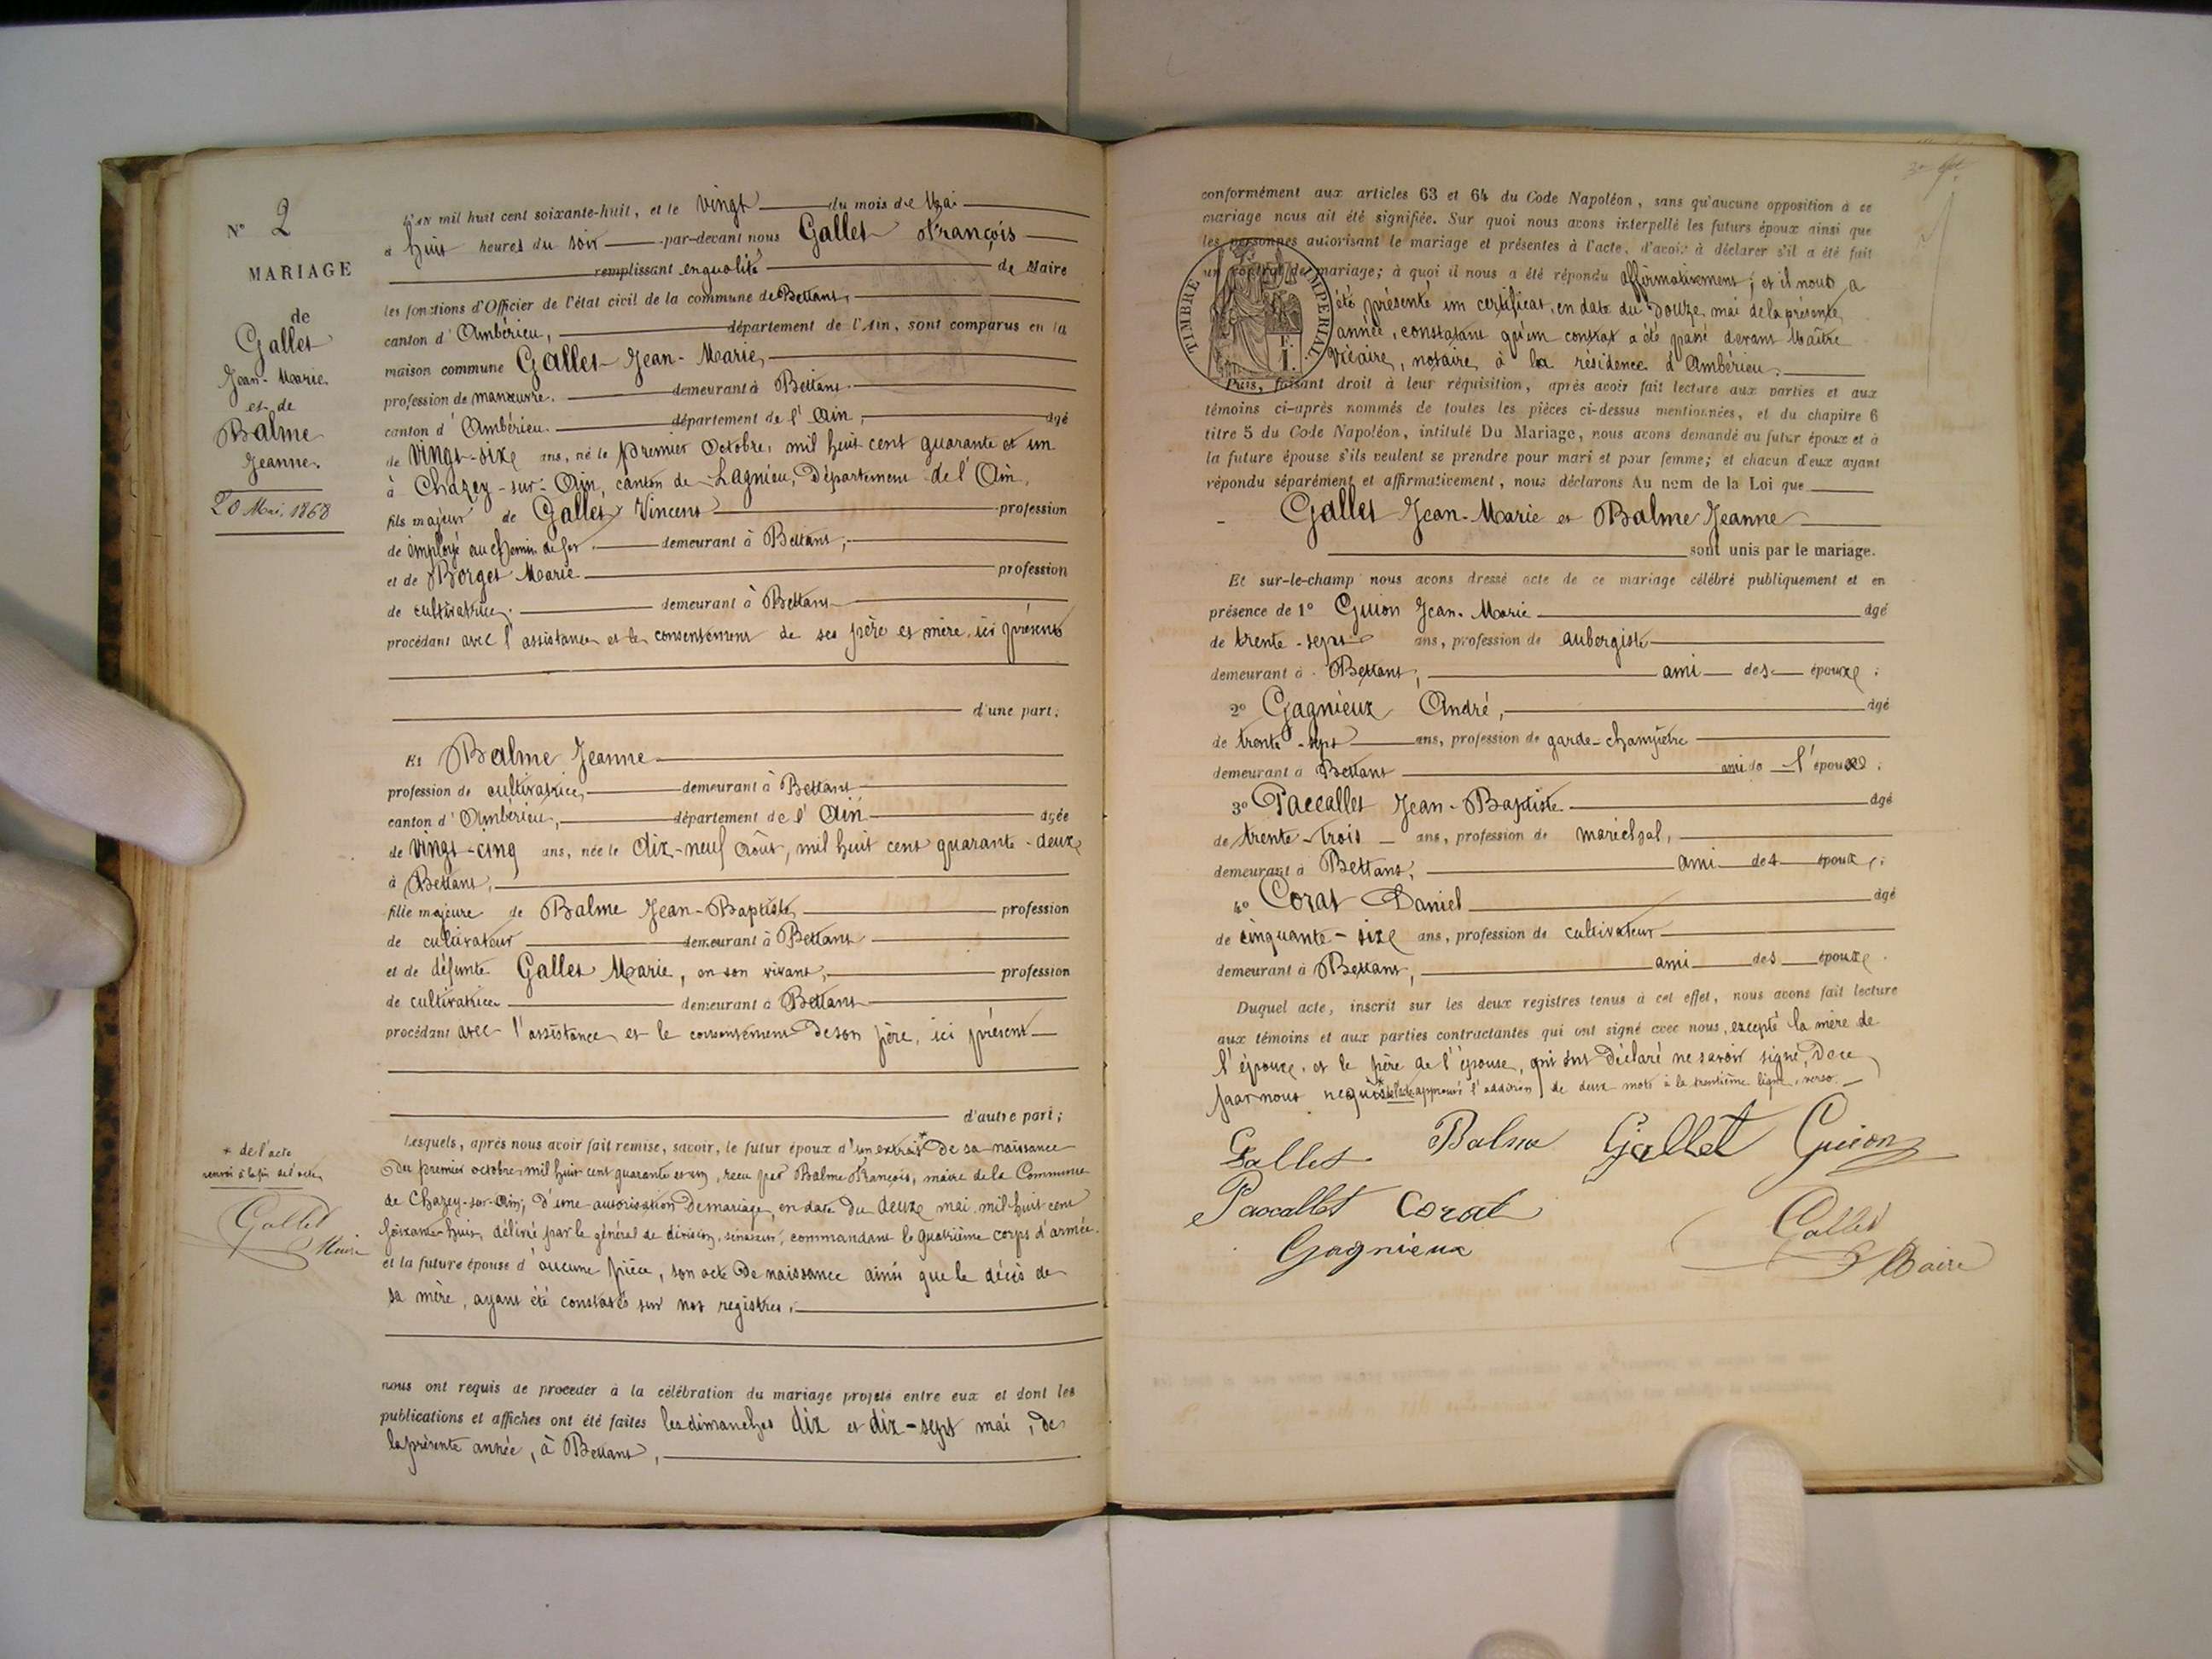 N° 2
MARIAGE
de
Gallet
Jean-Marie
et de
Balme
Jeanne.
20 Mai 1868
L'an mil huit cent soixante-huit, et le vingt du mois de Mai
à huit heures du soir par-devant nous Gallet François
remplissant en qualité de Maire
les fonctions d'Officier de l'état civil de la commune de Bettant,
canton d'Ambérieu, département de l'Ain, sont comparus en la
maison commune Gallet Jean-Marie,
profession de manœuvre. demeurant à Bettant.
canton d'Ambérieu. département de l'Ain, âgé
de vingt-six ans, né le premier Octobre, mil huit cent quarante et un
à Chazey-sur-Ain, canton de Lagnieu, Département de l'Ain,
fils majeur de Gallet Vincent profession
de employé au chemin de fer. demeurant à Bettant,
et de Borget Marie profession
de cultivatrice. demeurant à Bettant
procédant avec l'assistance et le consentement de ses père et mère, ici présents
d'une part;
Et Balme Jeanne
profession de cultivatrice, demeurant à Bettant
canton d'Ambérieu, département de l'Ain âgée
de vingt-cinq ans, née le dix-neuf Août, mil huit cent quarante-deux
à Bettant,
fille majeure de Balme Jean-Baptiste, profession
de cultivateur demeurant à Bettant
et de défunte Gallet Marie, en son vivant, profession
de cultivatrice demeurant à Bettant
procédant avec l'assistance et le consentement de son père, ici présent
d'autre part;
Lesquels, après nous avoir fait remise, savoir, le futur époux d'un extrait * de sa naissance
du premier octobre mil huit cent quarante et un, reçu par Balme François, maire de la Commune
de Chazey-sur-Ain; d'une autorisation de mariage, en date du deux mai mil huit cent
soixante-huit, délivré par le général de division, sénateur, commandant le quatrième corps d'armée.
et la future épouse d'aucune pièce, son acte de naissance ainsi que le décès de
sa mère, ayant été constatés sur nos registres,
* de l'acte
renvoi à la fin de l'acte
Gallet
Maire
nous ont requis de procéder à la célébration du mariage projeté entre eux et dont les
publications et affiches ont été faites les dimanches dix et dix-sept mai, de
la présente année, à Bettant,
conformément aux articles 63 et 64 du Code Napoléon, sans qu'aucune opposition à ce
mariage nous ait été signifiée. Sur quoi nous avons interpellé les futurs époux ainsi que
les personnes autorisant le mariage et présentes à l'acte, d'avoir à déclarer s'il a été fait
un contrat de mariage; à quoi il nous a été répondu affirmativement; et il nous a
été présenté un certificat, en date du Douze mai de la présente
année, constatant qu'un contrat a été passé devant Maître
Vicaire, notaire, à la résidence d'Ambérieu.
TIMBRE IMPERIAL
Puis, faisant droit à leur réquisition, après avoir fait lecture aux parties et aux
témoins ci-après nommés de toutes les pièces ci-dessus mentionnées, et du chapitre 6
titre 5 du Code Napoléon, intitulé Du Mariage, nous avons demandé au futur époux et à
la future épouse s'ils veulent se prendre pour mari et pour femme; et chacun d'eux ayant
répondu séparément et affirmativement, nous déclarons Au nom de la Loi que
Gallet Jean-Marie et Balme Jeanne
sont unis par le mariage.
Et sur-le-champ nous avons dressé acte de ce mariage célébré publiquement et en
présence de 1° Guion Jean-Marie âgé
de trente-sept ans, profession de aubergiste
demeurant à Bettant, ami des époux;
2° Gagnieux André, âgé
de trente-sept ans, profession de garde-champêtre
demeurant à Bettant ami de l'époux;
3° Paccallet Jean-Baptiste âgé
de trente-trois ans, profession de maréchal,
demeurant à Bettant, ami des époux;
4° Corat Daniel âgé
de cinquante-six ans, profession de cultivateur
demeurant à Bettant, ami des époux.
Duquel acte, inscrit sur les deux registres tenus à cet effet, nous avons fait lecture
aux témoins et aux parties contractantes qui ont signé avec nous, excepté la mère de
l'époux, et le père de l'épouse, qui ont déclaré ne savoir signé, de ce
par nous requis approuvé l'addition de deux mots à la trentième ligne, verso.
Gallet Balme Gallet Guion
Paccallet Corat
Gagnieux
Gallet
Maire